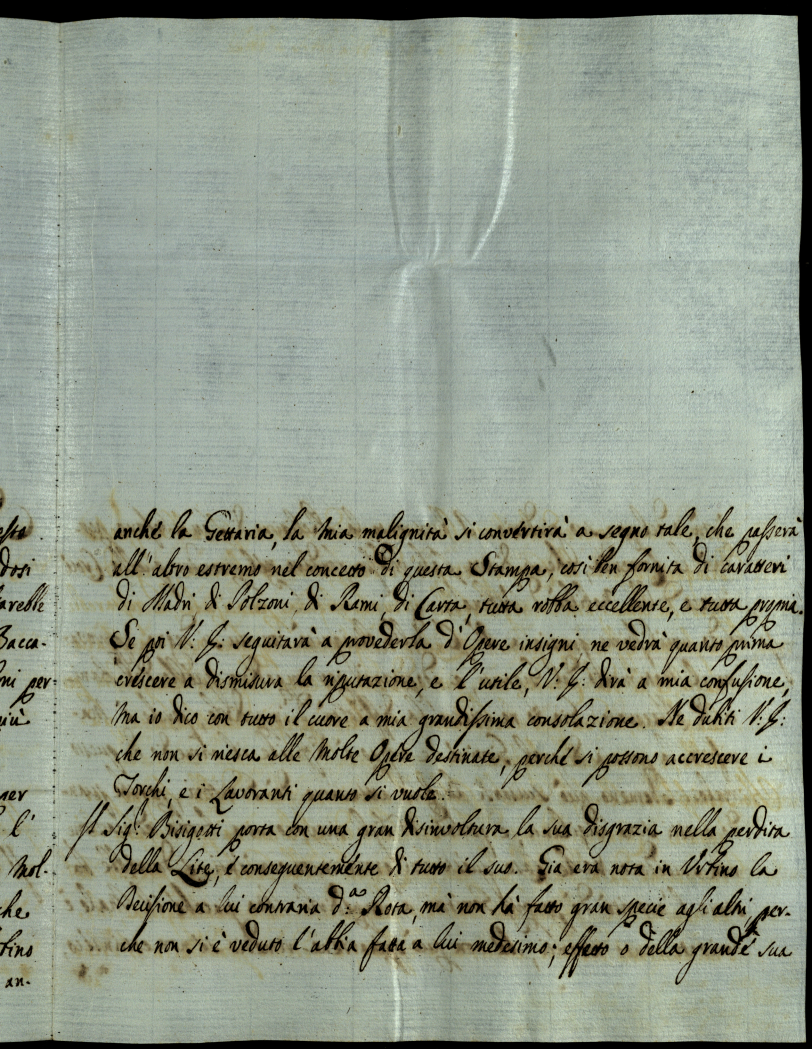 esta
dosi
arelle
Bacca-
ni per-
più
per
l'
Mol-
che
bino
an-
anche la Gettaria, la mia malignità si convertirà a segno tale, che passerà
all'altro estremo nel concetto di questa Stampa, così ben fornita di caratteri
di Madri di Polzoni, di Rami, di Carta, tutta robba eccellente, e tutta propria.
Se poi V: S: seguitarà a provederla d'Opere insigni, ne vedrà quanto prima
crescere a dismisura la riputazione, e l'utile, V: S: dirà a mia confusione,
ma io dico con tutto il cuore a mia grandissima consolazione. Ne dubiti V: S:
che non si riesca alle molte Opere destinate, perché si possono accrescere i
Torchi, e i Lavoranti quanto si vuole.
Il Sig.r Bisigotti porta con una gran disinvoltura la sua disgrazia nella perdita
della Lite, e conseguentemente di tutto il suo. Già era nota in Urbino la
Decisione a lui contraria d.a Rota, mà non hà fatto gran specie agli altri per-
che non si è veduto l'abbia fatta a lui medesimo; effetto o della grande sua